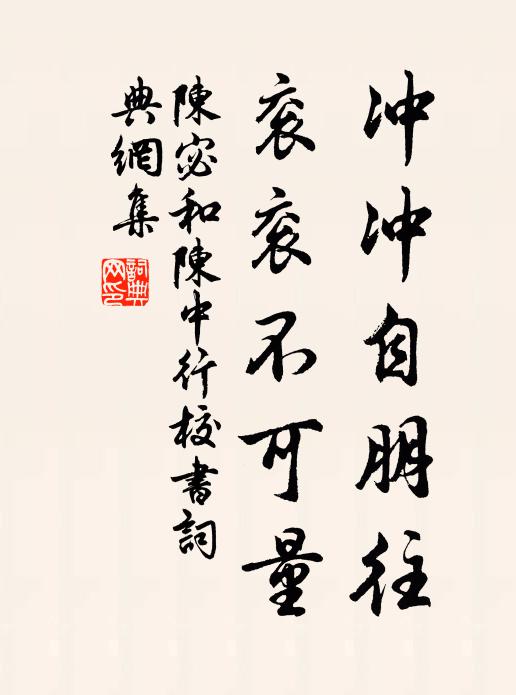 冲冲自朋往
衮衮不可量
陳宓和陳中行校書詞
典網集
詞典网印